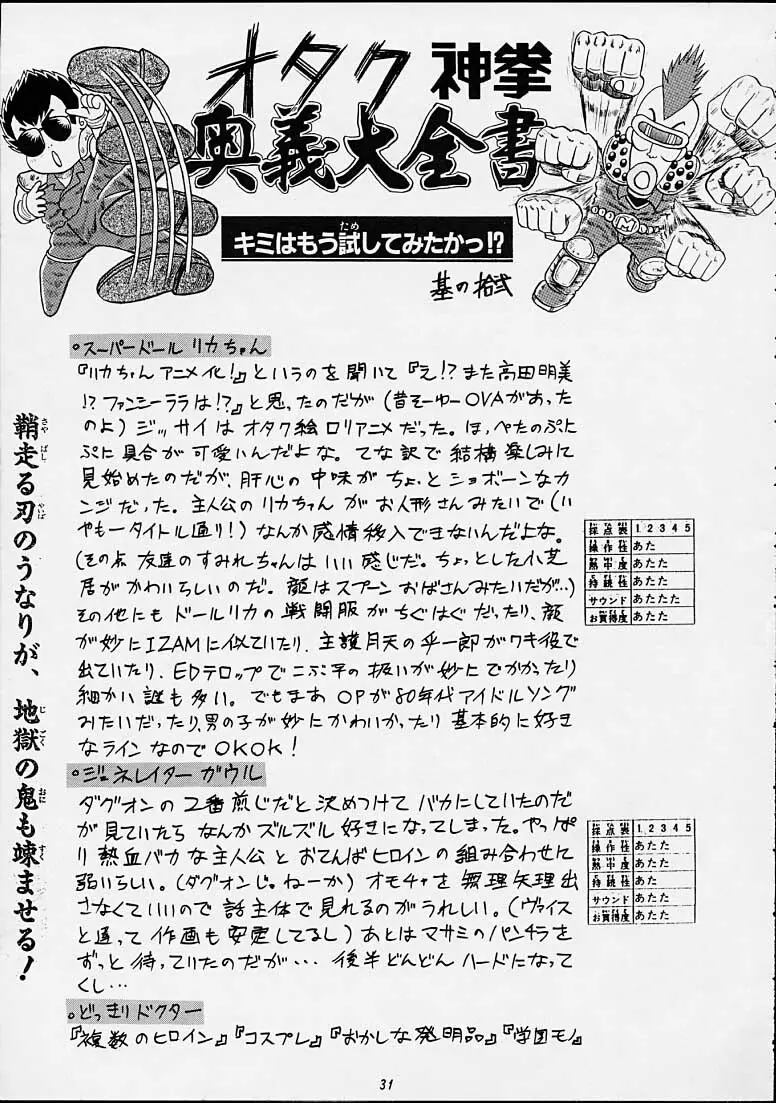 オタク神拳
奥義大全書
キミはもう試してみたかっ!?
基の拾弐
鞘走る刃のうなりが、地獄の鬼も竦ませる!
。スーパードール リカちゃん
『リカちゃん アニメ化!』というのを聞いて『え!? また高田明美
!? ファンシーララは!?』と思ったのだが(昔そーゆーOVAがあった
のよ)ジッサイはオタク絵ロリアニメだった。ほっぺたのぷに
ぷに具合が可愛いんだよな。てな訳で結構楽しみに
見始めたのだが、肝心の中味がちょっとショボーンなカ
ンジだった。主人公のリカちゃんがお人形さんみたいで(い
やもータイトル通り!)なんか感情移入できないんだよな。
(その点 友達のすみれちゃんはいい感じだ。ちょっとした小芝
居がかわいらしいのだ。顔はスプーンおばさんみたいだが…)
その他にもドールリカの戦闘服がちぐはぐだったり、顔
が妙にIZAMに似ていたり、主護月天の
出ていたり、EDテロップでこぶ平の扱いが妙にでかかったり
細かい謎も多い。でもまあOPが80年代アイドルソング
みたいだったり、男の子が妙にかわいかったり 基本的に好き
なラインなのでOKOK!
採点表 1 2 3 4 5
操作性 あた
熱中度 あたた
持続性 あたた
サウンド あたたた
お買得度 あたた
。ジェネレイターガウル
ダグオンの二番煎じだと決めつけてバカにしていたのだ
が見ていたらなんかズルズル好きになってしまった。やっぱ
り熱血バカな主人公とおてんばヒロインの組み合わせに
弱いらしい。(ダグオンじゃねーか)オモチャを無理矢理出
さなくていいので話主体で見れるのがうれしい。(ヴァイス
と違って作画も安定してるし)あとはマサミのパンチラを
ずっと待っていたのだが… 後半どんどんハードになって
くし…
採点表 1 2 3 4 5
操作性 あたた
熱中度 あたた
持続性 あた
サウンド あたた
お買得度 あたた
。どっきりドクター
『複数のヒロイン』『コスプレ』『おかしな発明品』『学園モノ』
31